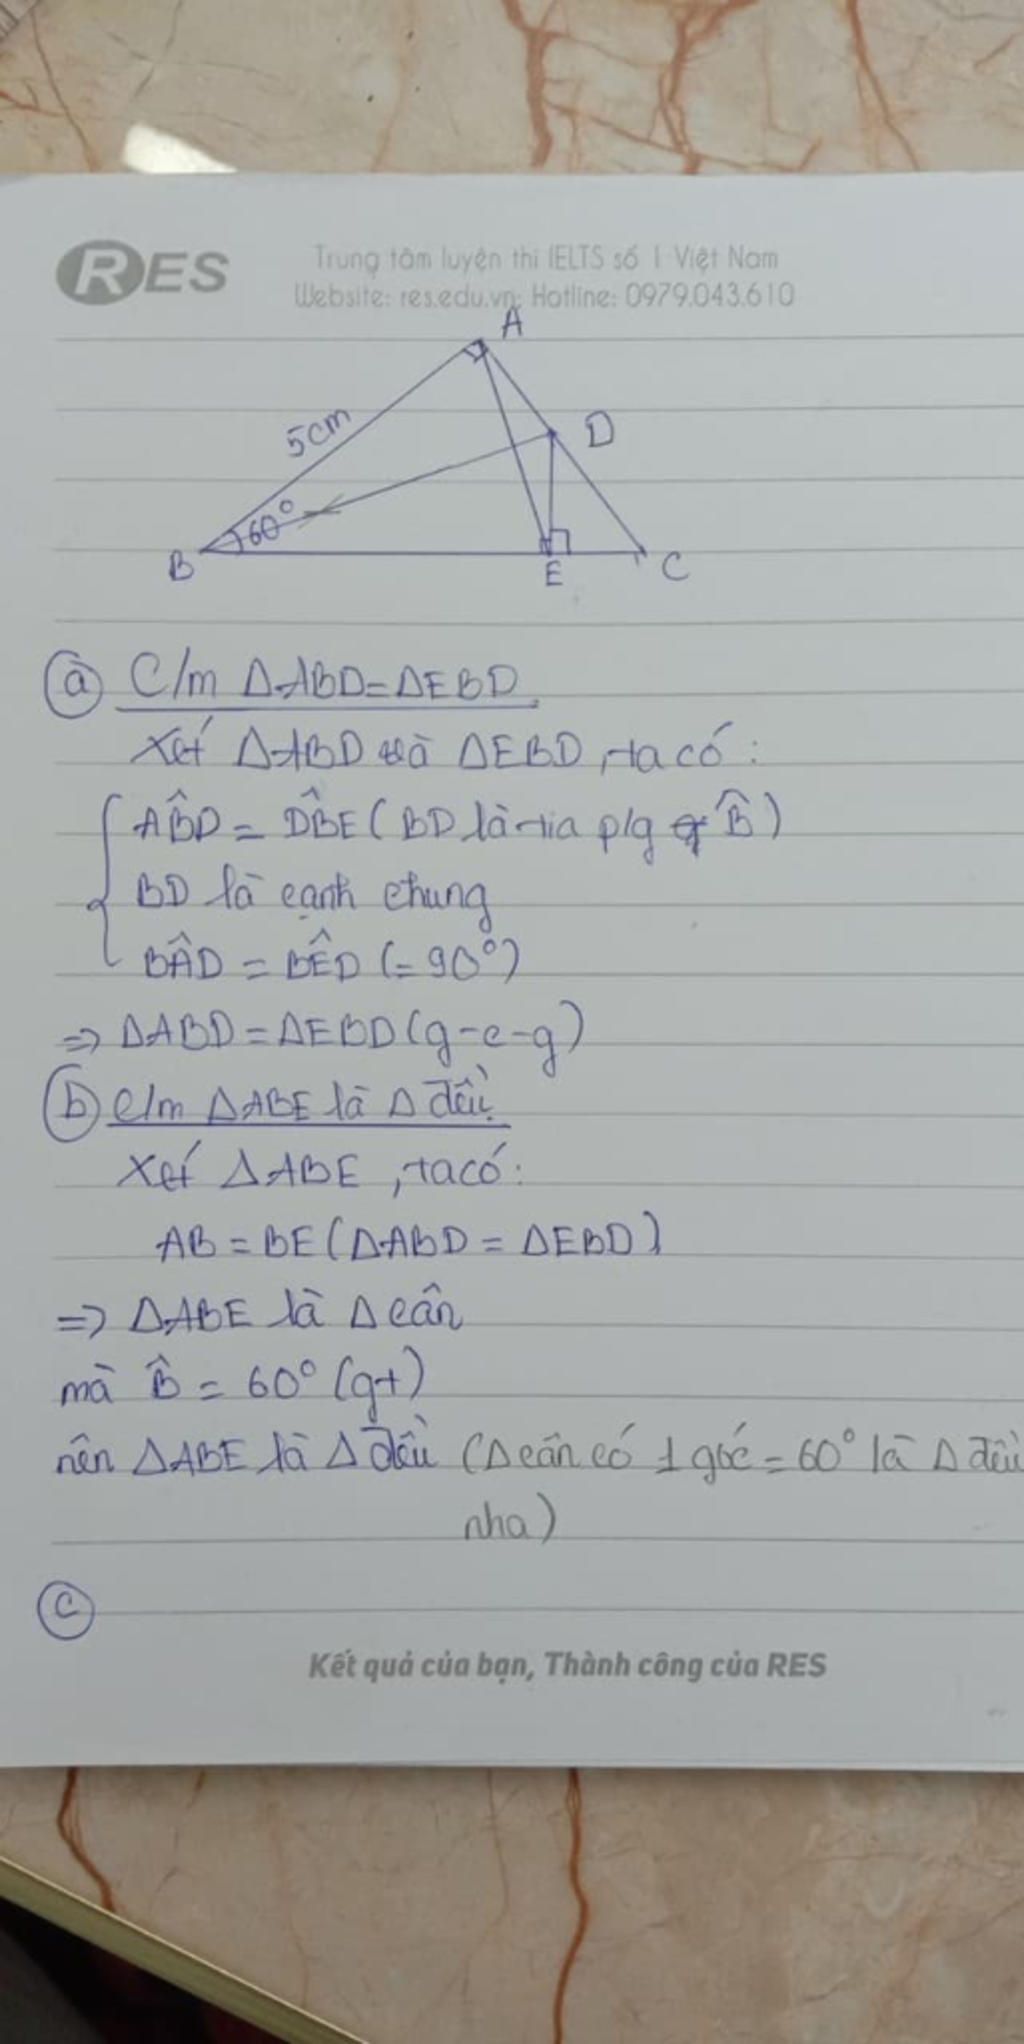 RES
Trung tâm luyện thi IELTS số 1 Việt Nam
Website: res.edu.vn; Hotline: 0979.043.610
A
5cm
D
60°
B
E
C
a C/m ΔABD=ΔEBD.
Xét ΔABD và ΔEBD, ta có:
AB̂D = DB̂E (BD là tia p/g B̂)
BD là cạnh chung
BÂD = BÊD (=90°)
=> ΔABD=ΔEBD (g-c-g)
b c/m ΔABE là Δ đều.
Xét ΔABE, ta có:
AB = BE (ΔABD = ΔEBD)
=> ΔABE là Δ cân
mà B̂ = 60° (gt)
nên ΔABE là Δ đều (Δ cân có 1 góc = 60° là Δ đều
nha)
c
Kết quả của bạn, Thành công của RES